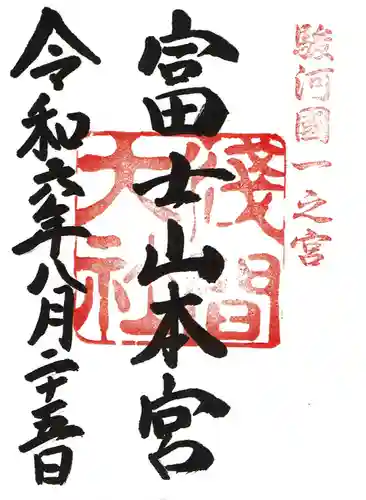 駿河國一之宮
富士山本宮
淺間大社
令和六年八月二十五日